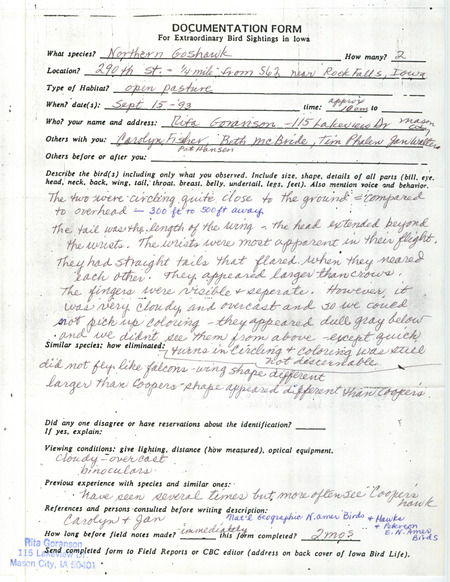 DOCUMENTATION FORM
For Extraordinary Bird Sightings in Iowa
What species? Northern Goshawk How many? 2
Location? 290th St. - 1/4 mile from S62 near Rock Falls, Iowa
Type of Habitat? open pasture
When? date(s): Sept 15-93 time: approx 10am to
Who? your name and address: Rita Goranson - 115 Lakeview Dr Mason City
Others with you: Carolyn Fisher, Beth McBride, Tim Phalen, Jan Walters
Pat Hansen
Others before or after you:
Describe the bird(s) including only what you observed. Include size, shape, details of all parts (bill, eye,
head, neck, back, wing, tail, throat, breast, belly, undertail, legs, feet). Also mention voice and behavior.
The two were circling quite close to the ground - compared
to overhead - 300 ft to 500 ft away.
The tail was the length of the wing - the head extended beyond
the wrists. The wrists were most apparent in their flight.
They had straight tails that flared when they neared
each other. They appeared larger than crows.
The fingers were visible & seperate. However, it
was very cloudy and overcast and so we could
not pick up coloring - they appeared dull gray below
and we didn't see them from above - except quick
Similar species; how eliminated: turns in circling & coloring was still
not discernable
did not fly like falcons - wing shape different
larger than Coopers - shape appeared different than Cooper's
Did any one disagree or have reservations about the identification?
If yes, explain:
Viewing conditions: give lighting, distance (how measured), optical equipment.
Cloudy - overcast
binoculars
Previous experience with species and similar ones:
have seen several times but more often see Cooper's
hawk
References and persons consulted before writing description:
Carolyn & Jan Nat'l Geographic N. Amer Birds & Hawks
& Peterson
E. N. Amer
Birds
How long before field notes made? immediately this form completed? 2 mos
Rita Goranson
115 Lakeview Dr.
Mason City, IA 50401
Send completed form to Field Reports or CBC editor (address on back cover of Iowa Bird Life).